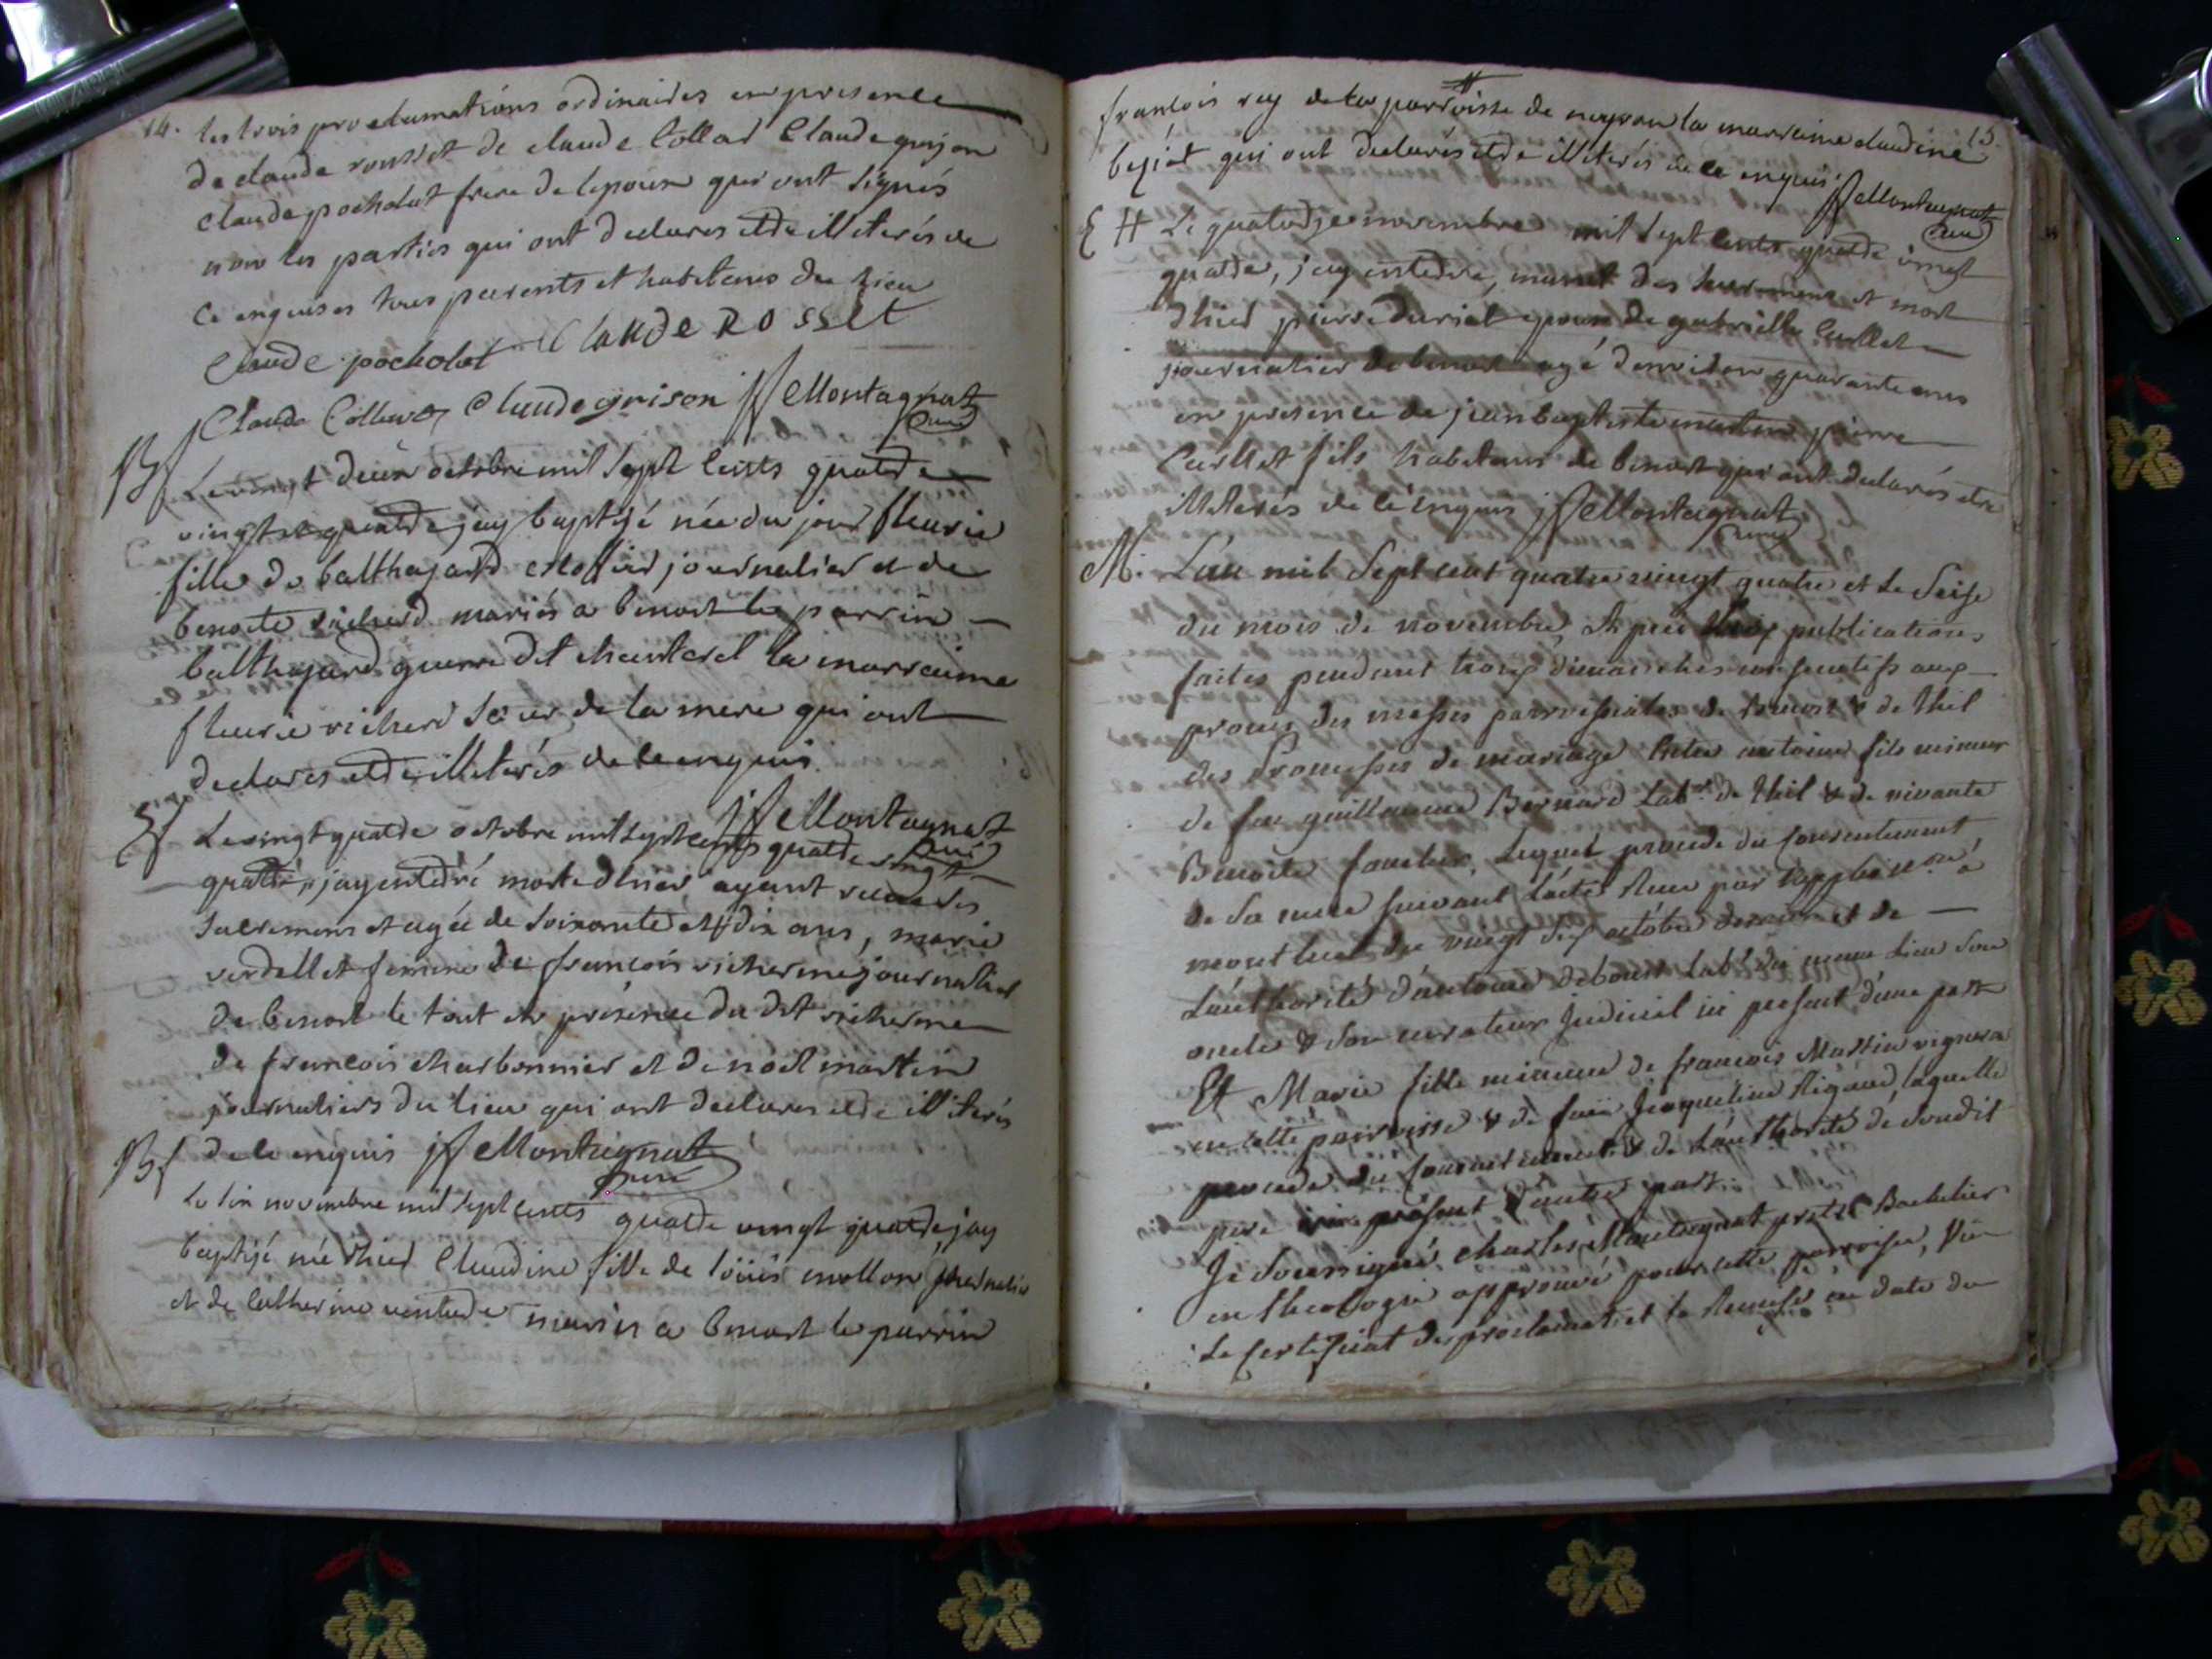 14. les trois proclamations ordinaires en presence
de claude rousset de claude Collas Claude grison
claude pocholat frere de lepoux qui ont signés
non les parties qui ont declares etre illiterés de
ce enquises tous parents et habitans du lieu
Claude pocholat Claude ROSSet
Claude Collas Claude grison Montagnat
Curé
B Le vingt deux octobre mil sept cents quatre
vingt quatre j'ay baptisé née du jour fleurie
fille de balthazard journalier et de
benoite richerd mariés a benost le parrin
balthazard guerre dit chanterel la marraine
fleurie richerd soeur de la mere qui ont
declares etre illiterés de ce enquis
Montagnat
curé
Le vingt quatre octobre mil sept cents quatre vingt
quatre, j'ay enterré morte d'hier ayant recu ses
sacremens et agée de soixante et dix ans, marie
verdellet femme de francois richerme journalier
de benost le tout en présence du dit richerme
de francois charbonnier et de noel martin
journaliers du lieu qui ont declares etre illiterés
de ce enquis Montagnat
Curé
B Le six novembre mil sept cents quatre vingt quatre j'ay
baptisé né d'hier Claudine fille de loüis mollon journalier
et de Catherine mariés a benost le parrin
15.
francois rey de la parroisse de neyron la marraine claudine
qui ont declarés etre illiterés de ce enquis
Montagnat
Curé
Le quatorze novembre mil sept cents quatre vingt
quatre, j'ay enterré, munit des sacremens et mort
d'hier pierre duriat epoux de gabrielle Curllet
journalier de benost agé d'environ quarante ans
en presence de jean baptiste martin pierre
Curllet fils habitans de benost qui ont declarés etre
illiterés de ce enquis Montagnat
Curé
M. L'an mil sept cent quatre vingt quatre et le seise
du mois de novembre, publications
faites pendant trois dimanches consecutifs aux
prones des messes parroissiales de benost & de thil
des promesses de mariage Entre antoine fils mineur
de feu guillaume Bernard Labr. de thil & de vivante
Benoite, lequel procede du consentement
de sa mere suivant l'acte reçu par à
montluel du vingt six octobre dernier et de
l'authorité d'antoine debourt Labr. du meme lieu son
oncle & son curateur judiciel ici present d'une part
Et Marie fille mineure de francois Martin vigneron
en cette parroisse & de fuë Jacqueline Rigaud, laquelle
procede du consentement & de l'authorité de sondit
pere ici présent d'autre part.
Je soussigné, charles Montagnat pretre Bachelier
en theologie approuvé pour cette parroisse, Vû
le Certificat de proclamat. et la Remise en date du